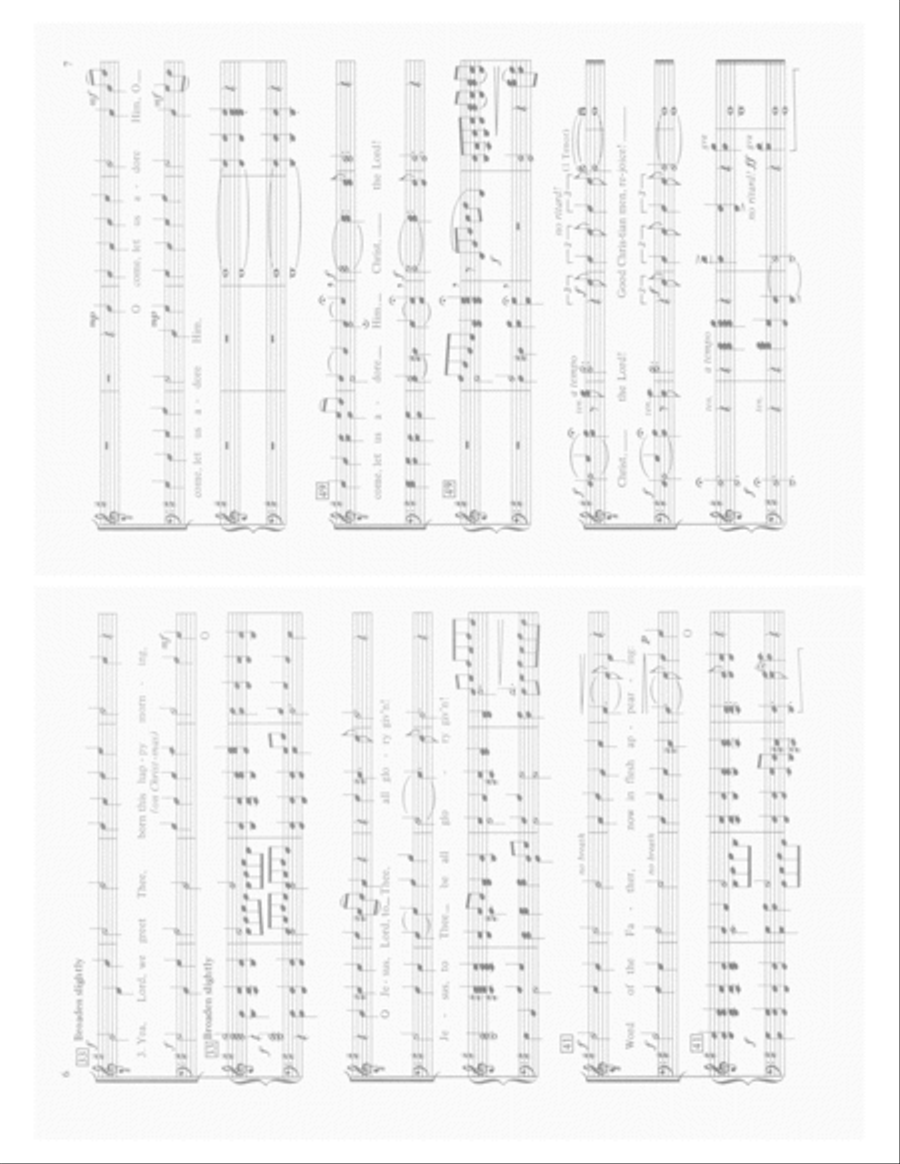 6
33 Broaden slightly
f
3. Yea, Lord, we greet Thee, born this hap - py morn - ing,
(on Christ-mas)
mf
O
33 Broaden slightly
f
O Je - sus, Lord, to Thee, all glo - ry giv'n!
Je - sus, to Thee be all glo - ry giv'n!
41
f
no breath
Word of the Fa - ther, now in flesh ap - pear - ing
f
no breath
p
O
41
f
7
mp
mf
O come, let us a - dore Him, O
mp
mf
come, let us a - dore Him,
49
f
come, let us a - dore Him, Christ, the Lord!
f
49
f
f
ten. a tempo
f
no ritard!
(1 Tenor)
Christ, the Lord! Good Chris-tian men, re-joice!
f
ten.
f
ten. a tempo
f
ten.
no ritard! ff